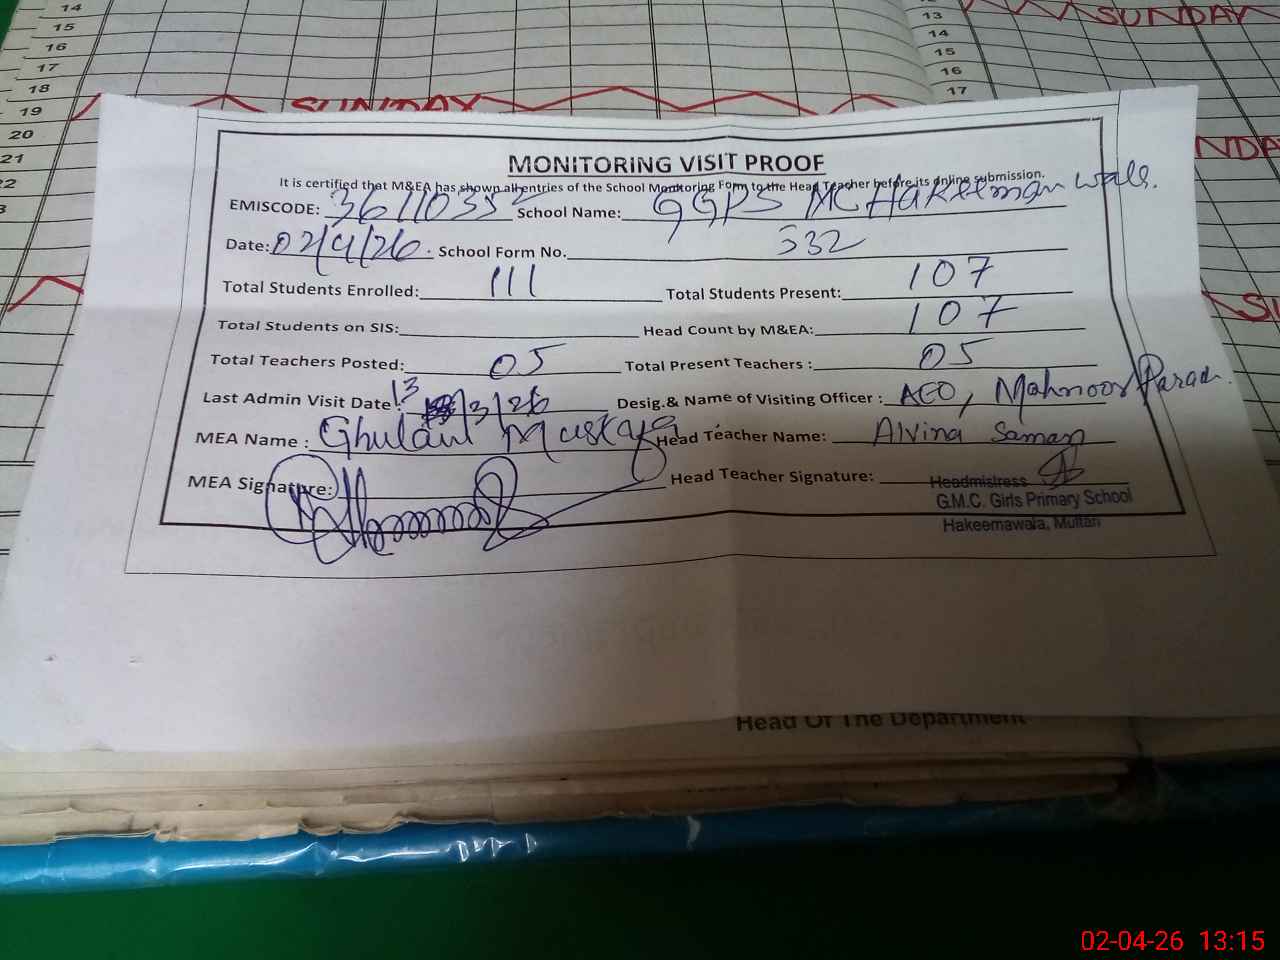 14
15
16
17
18
19
20
21
22
3
13
14
15
16
17
SUNDAY
SUNDAY
NDA
MONITORING VISIT PROOF
It is certified that M&EA has shown all entries of the School Monitoring Form to the Head Teacher before its online submission.
EMISCODE: 36110352 School Name: GGPS MC Hakeeman wala.
Date: 02/4/26. School Form No. 532
Total Students Enrolled: 111 Total Students Present: 107
Total Students on SIS: Head Count by M&EA: 107
Total Teachers Posted: 05 Total Present Teachers : 05
Last Admin Visit Date : 13/3/26 Desig.& Name of Visiting Officer : AEO, Mahnoor
MEA Name : Ghulam Head Teacher Name: Alvina Saman
MEA Signature: Head Teacher Signature:
Headmistress
G.M.C. Girls Primary School
Hakeemawala, Multan
Head Of The Department
02-04-26 13:15